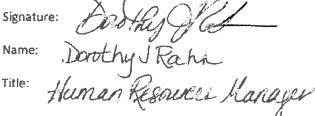 Signature: Dorothy J Rahn
Name: Dorothy J Rahn
Title: Human Resources Manager